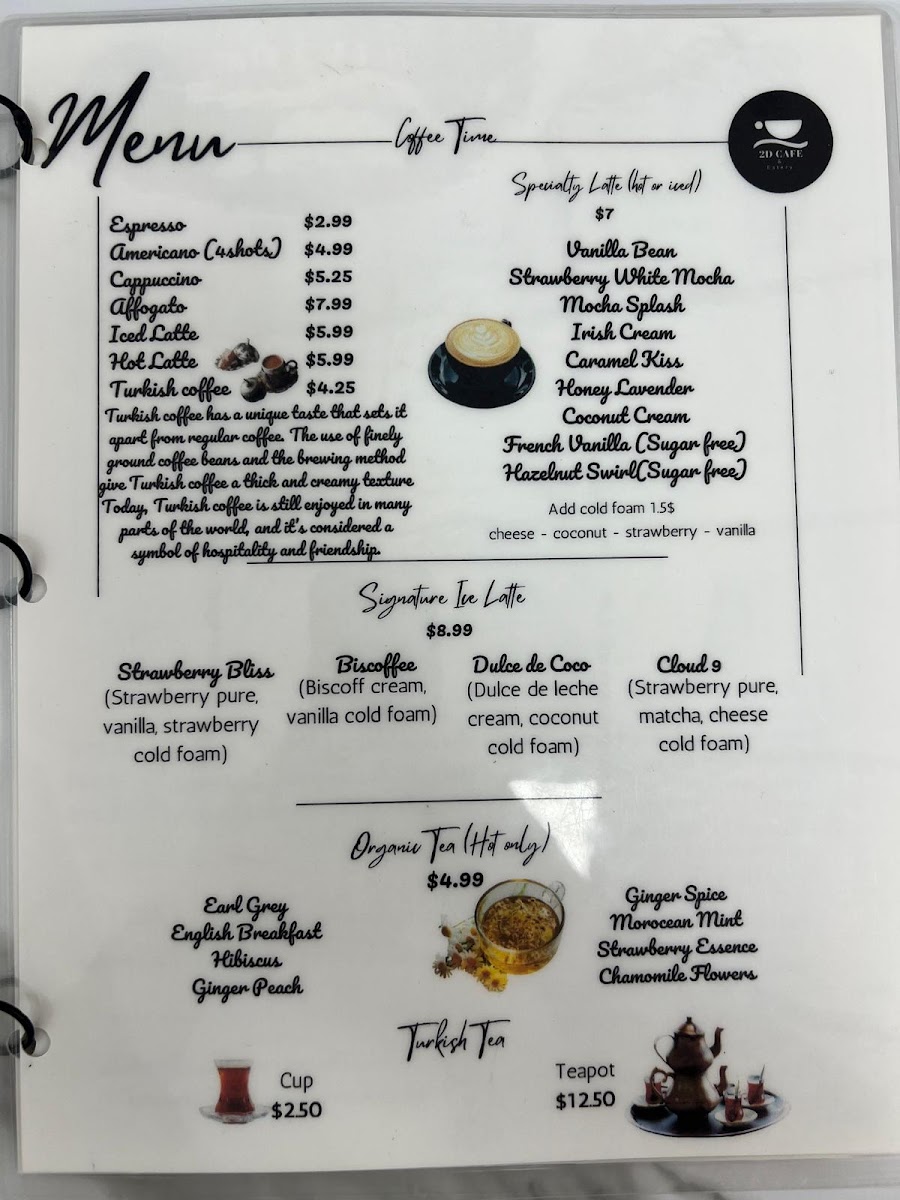 Menu
Coffee Time
2D CAFE
&
Eatery
Espresso $2.99
Americano (4shots) $4.99
Cappuccino $5.25
Affogato $7.99
Iced Latte $5.99
Hot Latte $5.99
Turkish coffee $4.25
Turkish coffee has a unique taste that sets it
apart from regular coffee. The use of finely
ground coffee beans and the brewing method
give Turkish coffee a thick and creamy texture
Today, Turkish coffee is still enjoyed in many
parts of the world, and it's considered a
symbol of hospitality and friendship.
Specialty Latte (hot or iced)
$7
Vanilla Bean
Strawberry White Mocha
Mocha Splash
Irish Cream
Caramel Kiss
Honey Lavender
Coconut Cream
French Vanilla (Sugar free)
Hazelnut Swirl(Sugar free)
Add cold foam 1.5$
cheese - coconut - strawberry - vanilla
Signature Ice Latte
$8.99
Strawberry Bliss
(Strawberry pure,
vanilla, strawberry
cold foam)
Biscoffee
(Biscoff cream,
vanilla cold foam)
Dulce de Coco
(Dulce de leche
cream, coconut
cold foam)
Cloud 9
(Strawberry pure,
matcha, cheese
cold foam)
Organic Tea (Hot only)
$4.99
Earl Grey
English Breakfast
Hibiscus
Ginger Peach
Ginger Spice
Morocean Mint
Strawberry Essence
Chamomile Flowers
Turkish Tea
Cup
$2.50
Teapot
$12.50